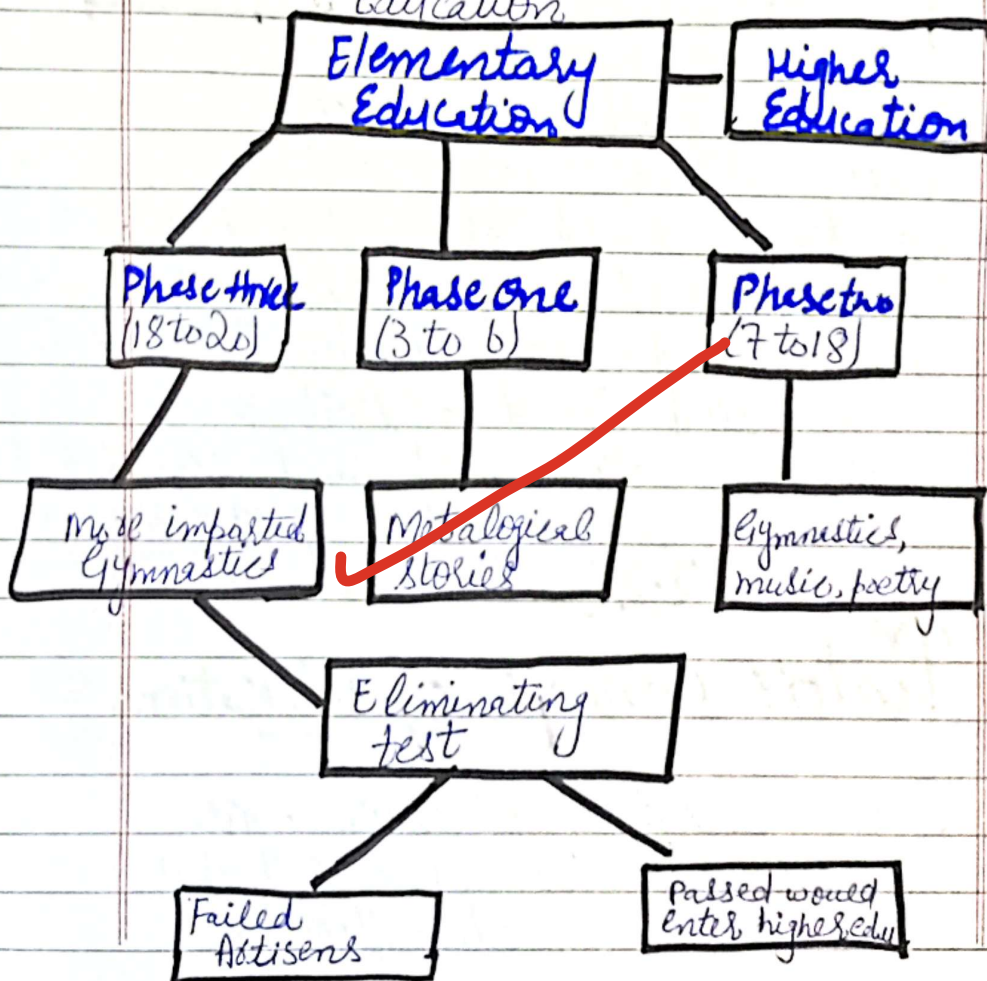 Education
Elementary
Education
Higher
Education
Phase three
(18 to 20)
Phase one
(3 to 6)
Phase two
(7 to 18)
More imparted
Gymnastics
Metalogical
stories
Gymnestics,
music, poetry
Eliminating
test
Failed
Artisens
Passed would
enter higher edu